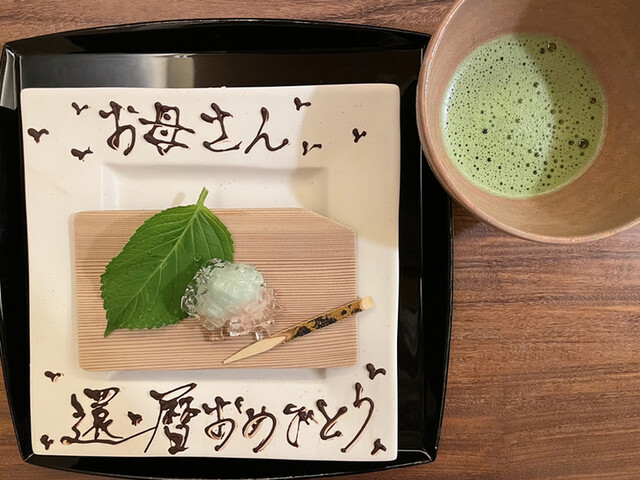 お母さん
還暦おめでとう